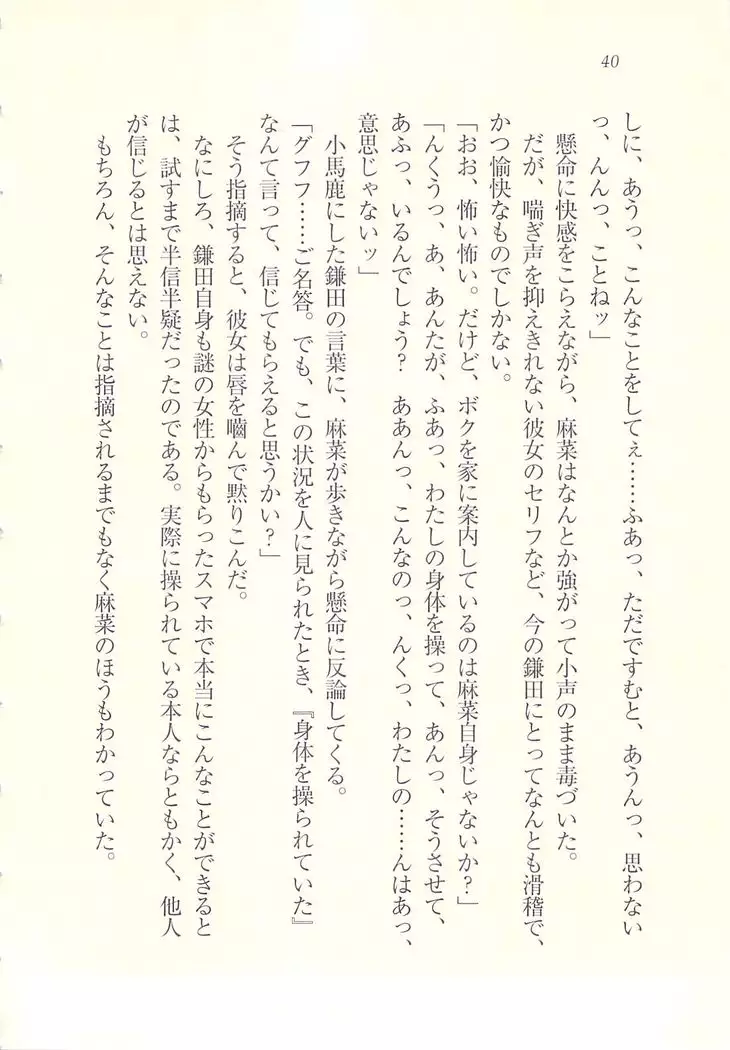 40
しに、あうっ、こんなことをしてぇ……ふあっ、ただですむと、あうんっ、思わない
っ、んんっ、ことねッ」
懸命に快感をこらえながら、麻菜はなんとか強がって小声のまま毒づいた。
だが、喘ぎ声を抑えきれない彼女のセリフなど、今の鎌田にとってなんとも滑稽で、
かつ愉快なものでしかない。
「おお、怖い怖い。だけど、ボクを家に案内しているのは麻菜自身じゃないか？」
「んくうっ、あ、あんたが、ふあっ、わたしの身体を操って、あんっ、そうさせて、
あふっ、いるんでしょう？　ああんっ、こんなのっ、んくっ、わたしの……んはあっ、
意思じゃないッ」
小馬鹿にした鎌田の言葉に、麻菜が歩きながら懸命に反論してくる。
「グフフ……ご名答。でも、この状況を人に見られたとき、『身体を操られていた』
なんて言って、信じてもらえると思うかい？」
そう指摘すると、彼女は唇を噛んで黙りこんだ。
なにしろ、鎌田自身も謎の女性からもらったスマホで本当にこんなことができると
は、試すまで半信半疑だったのである。実際に操られている本人ならともかく、他人
が信じるとは思えない。
もちろん、そんなことは指摘されるまでもなく麻菜のほうもわかっていた。